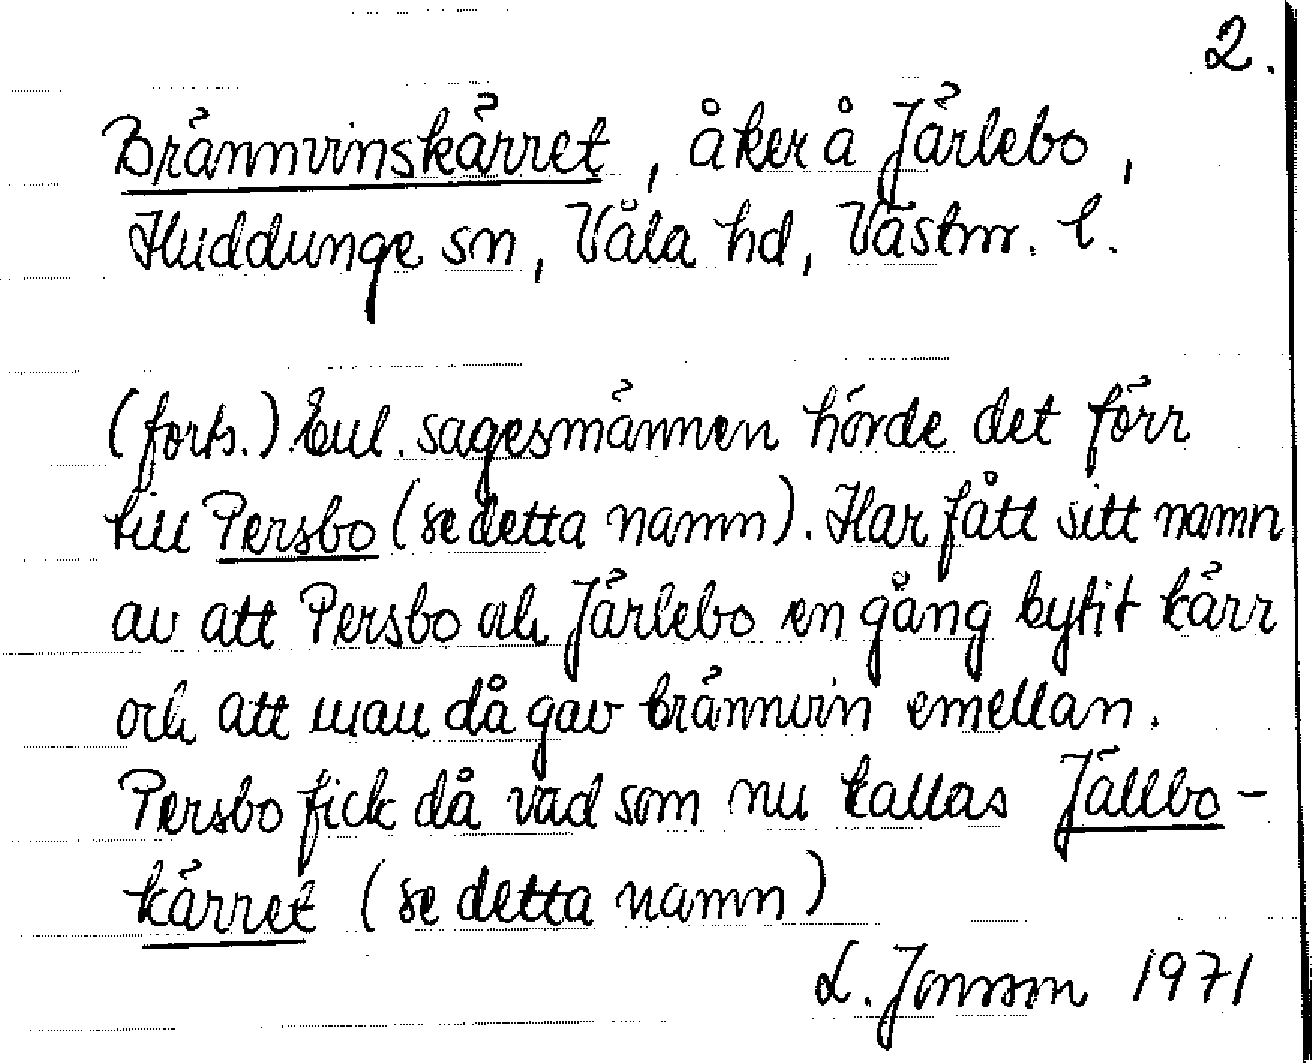 2.
Brännvinskärret, åker å Järlebo,
Huddunge sn, Våla hd, Västm. l.
(forts.) Enl. sagesmännen hörde det förr
till Persbo (se detta namn). Har fått sitt namn
av att Persbo och Järlebo en gång bytit kärr
och att man då gav brännvin emellan.
Persbo fick då vad som nu kallas Jällbo-
kärret (se detta namn)
L. Jonsson 1971